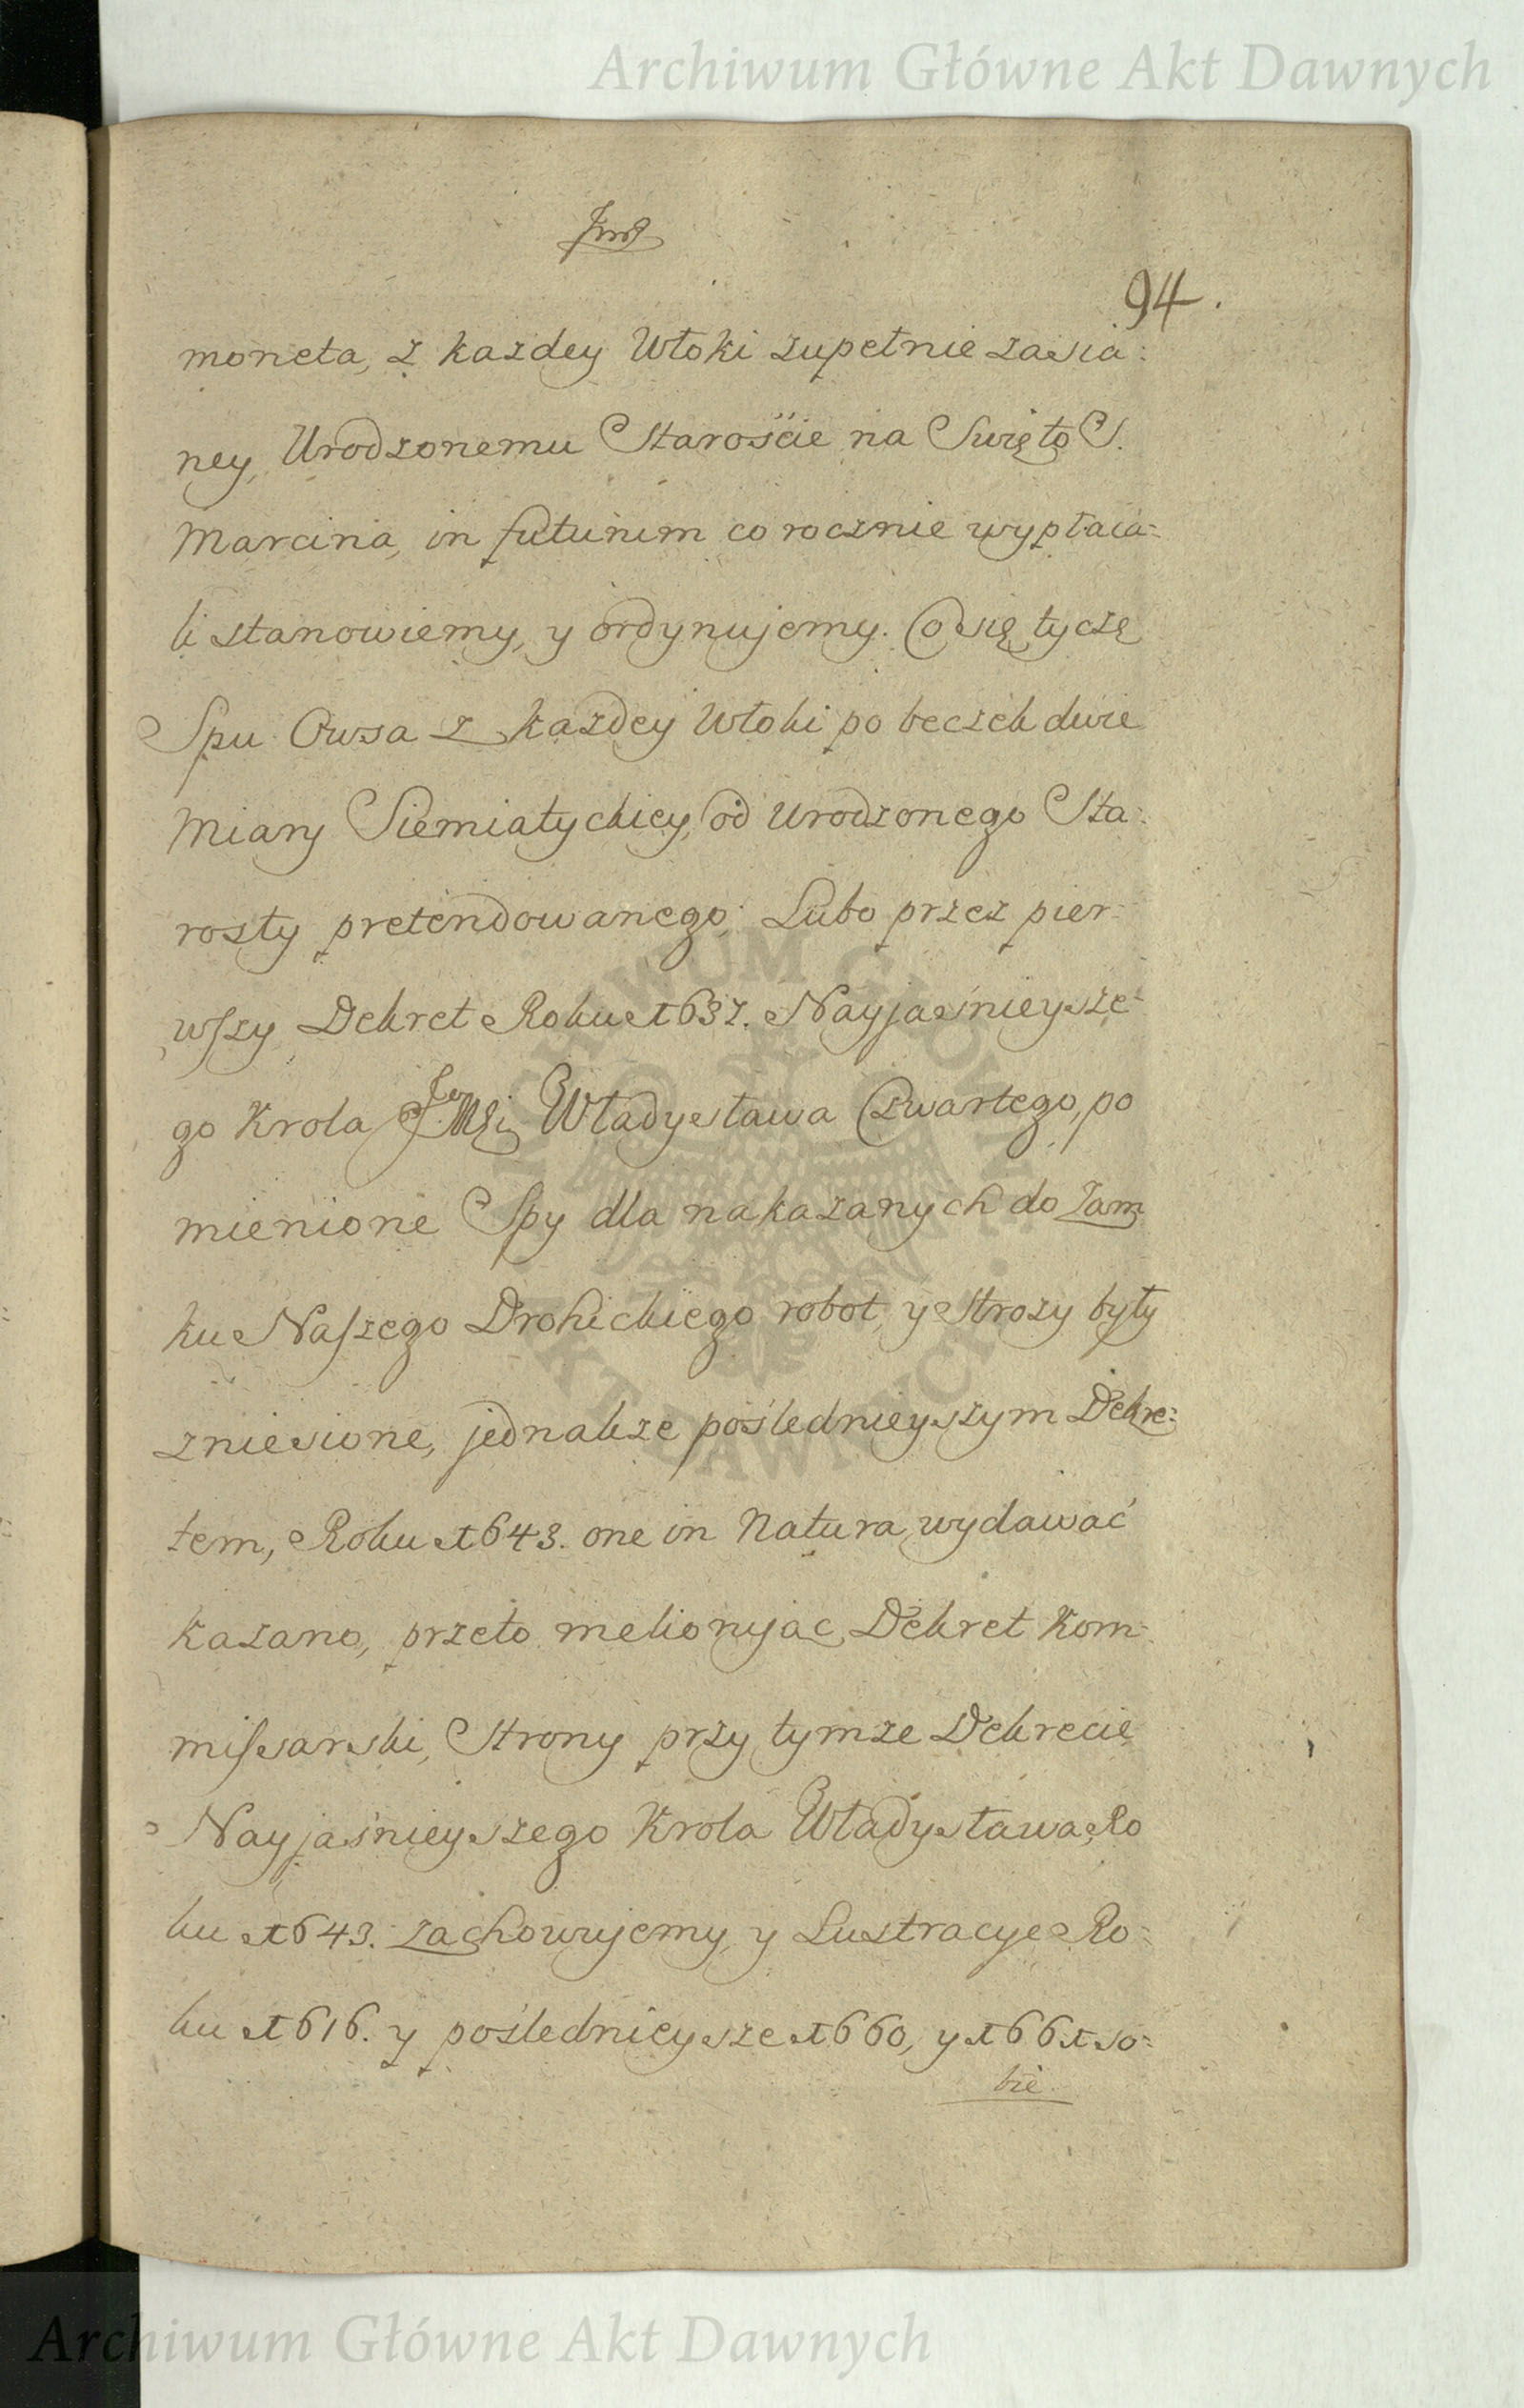 Archiwum Główne Akt Dawnych
94.
moneta, z kazdey Włoki zupełnie zasia:
ney, Urodzonemu Starośćie na Swięto S.
Marcina, in futurum co rocznie wypłaca:
li stanowiemy, y ordynujemy. Co się tyczę
Spu Owsa z każdey Włoki po beczek dwie
Miary Siemiatyckiey, od Urodzonego Sta:
rosty pretendowanego: Lubo przez pier:
wszy Dekret Roku 1637. Nayjaśnieysze:
go Krola Jeo Mści Władysława Czwartego, po
mienione Spy dla nakazanych do Zam
ku Naszego Drohickiego robot, y Strozy były
zniesione, jednakze poślednieyszym Dekre:
tem, Roku 1643. one in Natura wydawać
kazano, przeto meliorując Dekret Kom:
missarski, Strony przy tymze Dekrecie
Nayjaśnieyszego Krola Władysława Ro
ku 1643. zachowujemy, y Lustracye Ro:
ku 1616. y poślednieysze 1660, y 1661 so:
bie
ARCHIWUM GŁÓWNE AKT DAWNYCH
Archiwum Główne Akt Dawnych